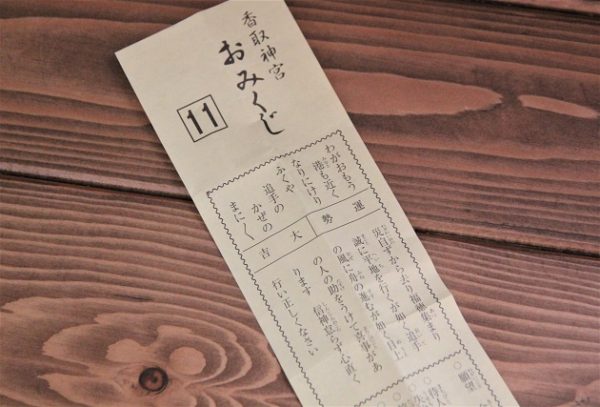 香取神宮
おみくじ
11
わがおもう
港も近く
なりにけり
ふくや
追手の
かぜの
まにく
運勢
大吉
災自ずから去り福徳集まり
誠に平地を行くが如く追手
の風に舟の進むが如く目上
の人の助をうけて喜事があ
ります 信神怠らず心直く
行い正しくなさい
願望
待人